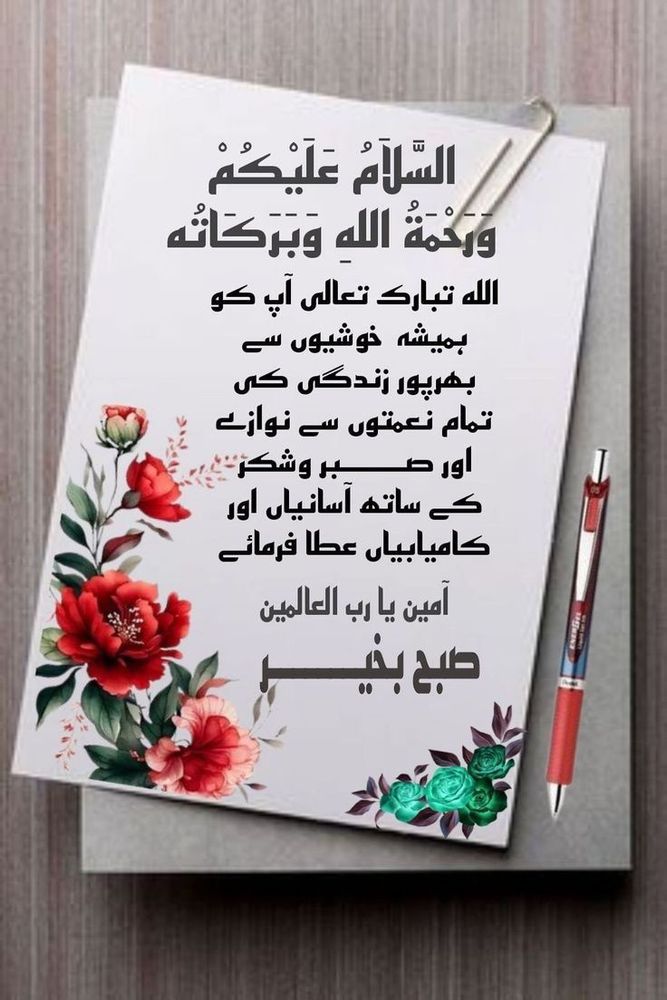 السَّلاَمُ عَلَيْكُمْ
وَرَحْمَةُ اللهِ وَبَرَكَاتُه
الله تبارک تعالی آپ کو
ہمیشہ خوشیوں سے
بھرپور زندگی کی
تمام نعمتوں سے نوازے
اور صبر وشکر
کے ساتھ آسانیاں اور
کامیابیاں عطا فرمائے
آمین یا رب العالمین
صبح بخیر
ENERGEL
Pentel